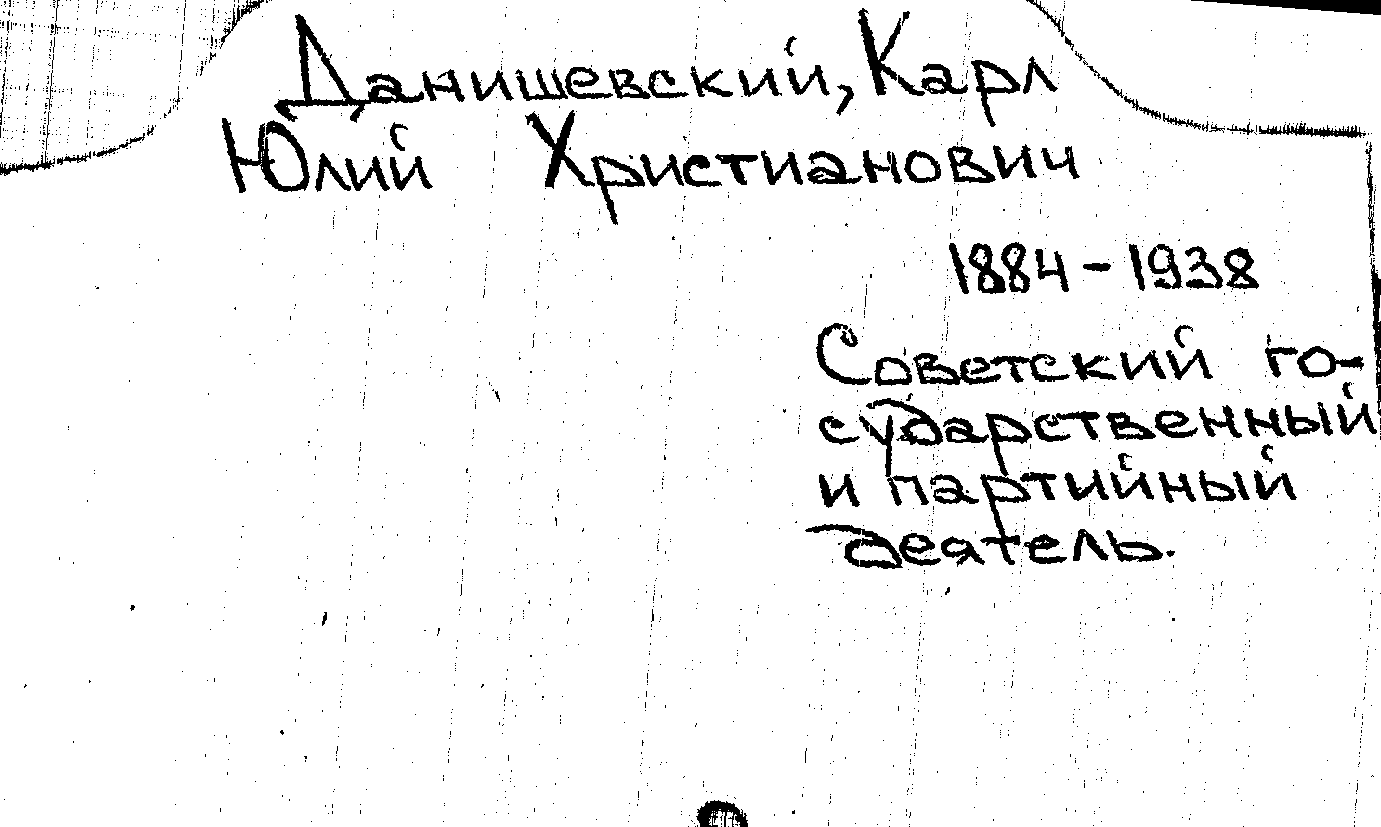 Данишевский, Карл
Юлий Христианович
1884 - 1938
Советский го-
сударственный
и партийный
деятель.